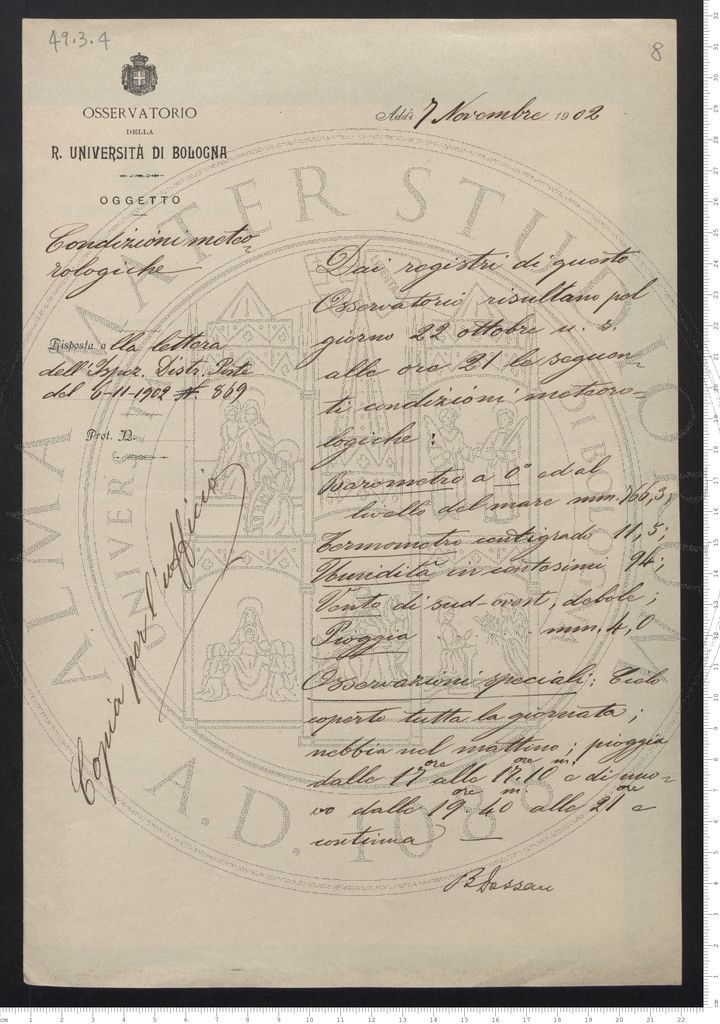 49.3.4
8
OSSERVATORIO
DELLA
R. UNIVERSITÀ DI BOLOGNA
OGGETTO
Condizioni meteo=
rologiche
Risposta alla lettera
dell'Ispez. Distr. Poste
del 6-11-1902 №. 869
Prot. N.
Copia per l'ufficio
Addì 7 Novembre 1902
Dai registri di questo
Osservatorio risultano pel
giorno 22 ottobre u. s.
alle ore 21 le seguen-
ti condizioni meteoro-
logiche:
Barometro a 0° ed al
livello del mare mm. 766,3;
Termometro centigrado 11,5;
Umidità in centesimi 94;
Vento di sud-ovest, debole;
Pioggia . . mm. 4,0
Osservazioni speciali: Cielo
coperto tutta la giornata;
nebbia nel mattino; pioggia
dalle 17 ore alle 17 ore 10 m. e di nuo=
vo dalle 19 ore 40 m. alle 21 ore e
continua
ALMA MATER STUDIORUM
A.D. 1088